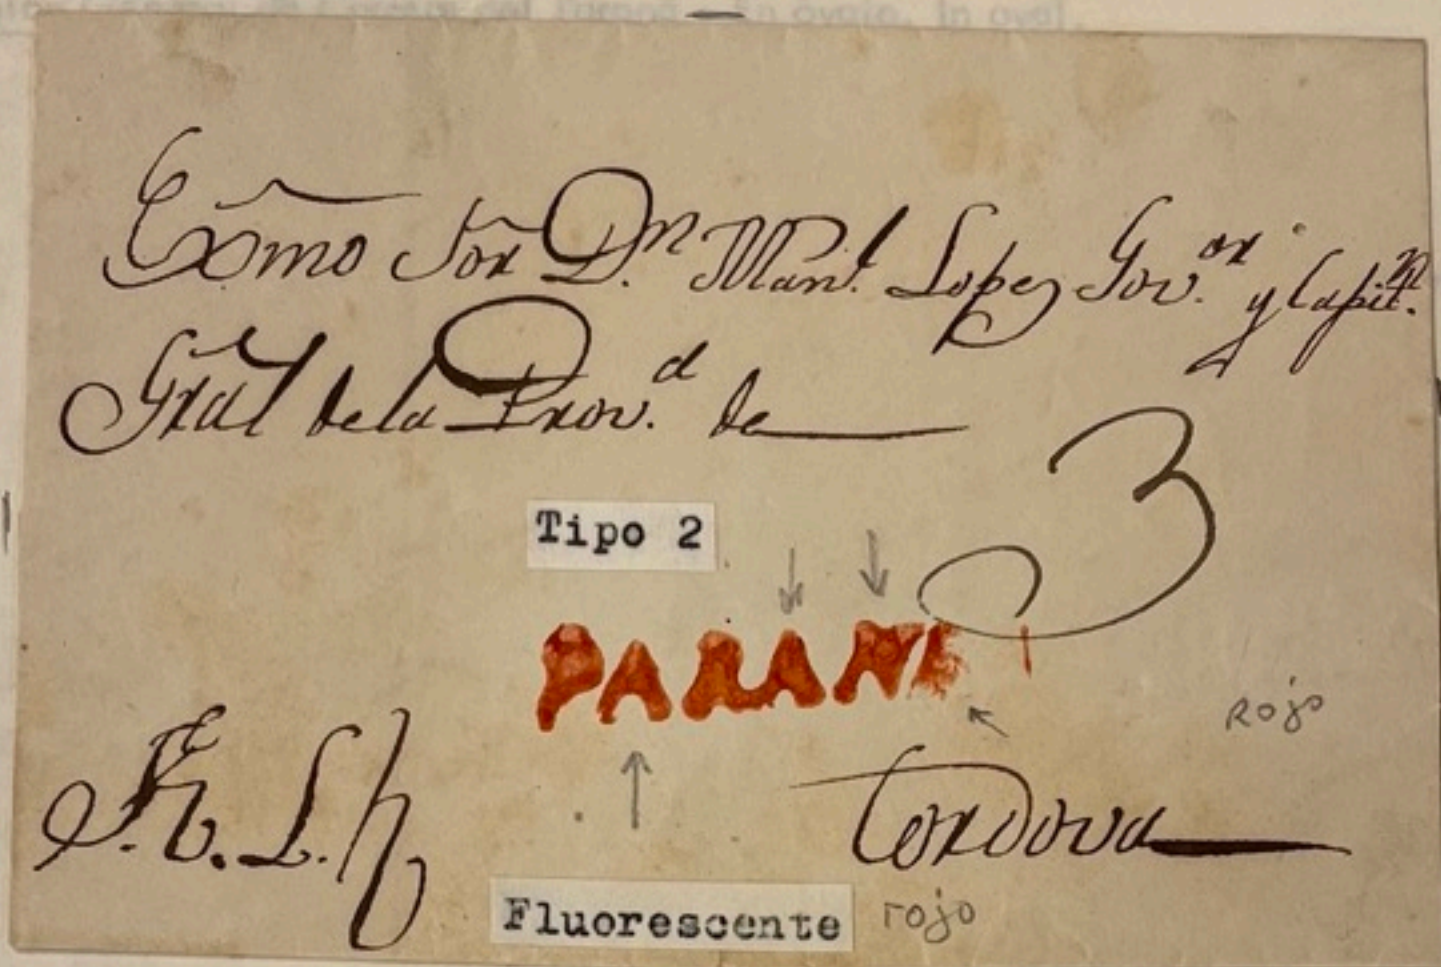 Exmo Sõr Dn. Manl. Lopez Govor. y Capitn.
Grãl de la Provd. de
3
Tipo 2
PARANA
Rojo
Cordova
Fluorescente rojo